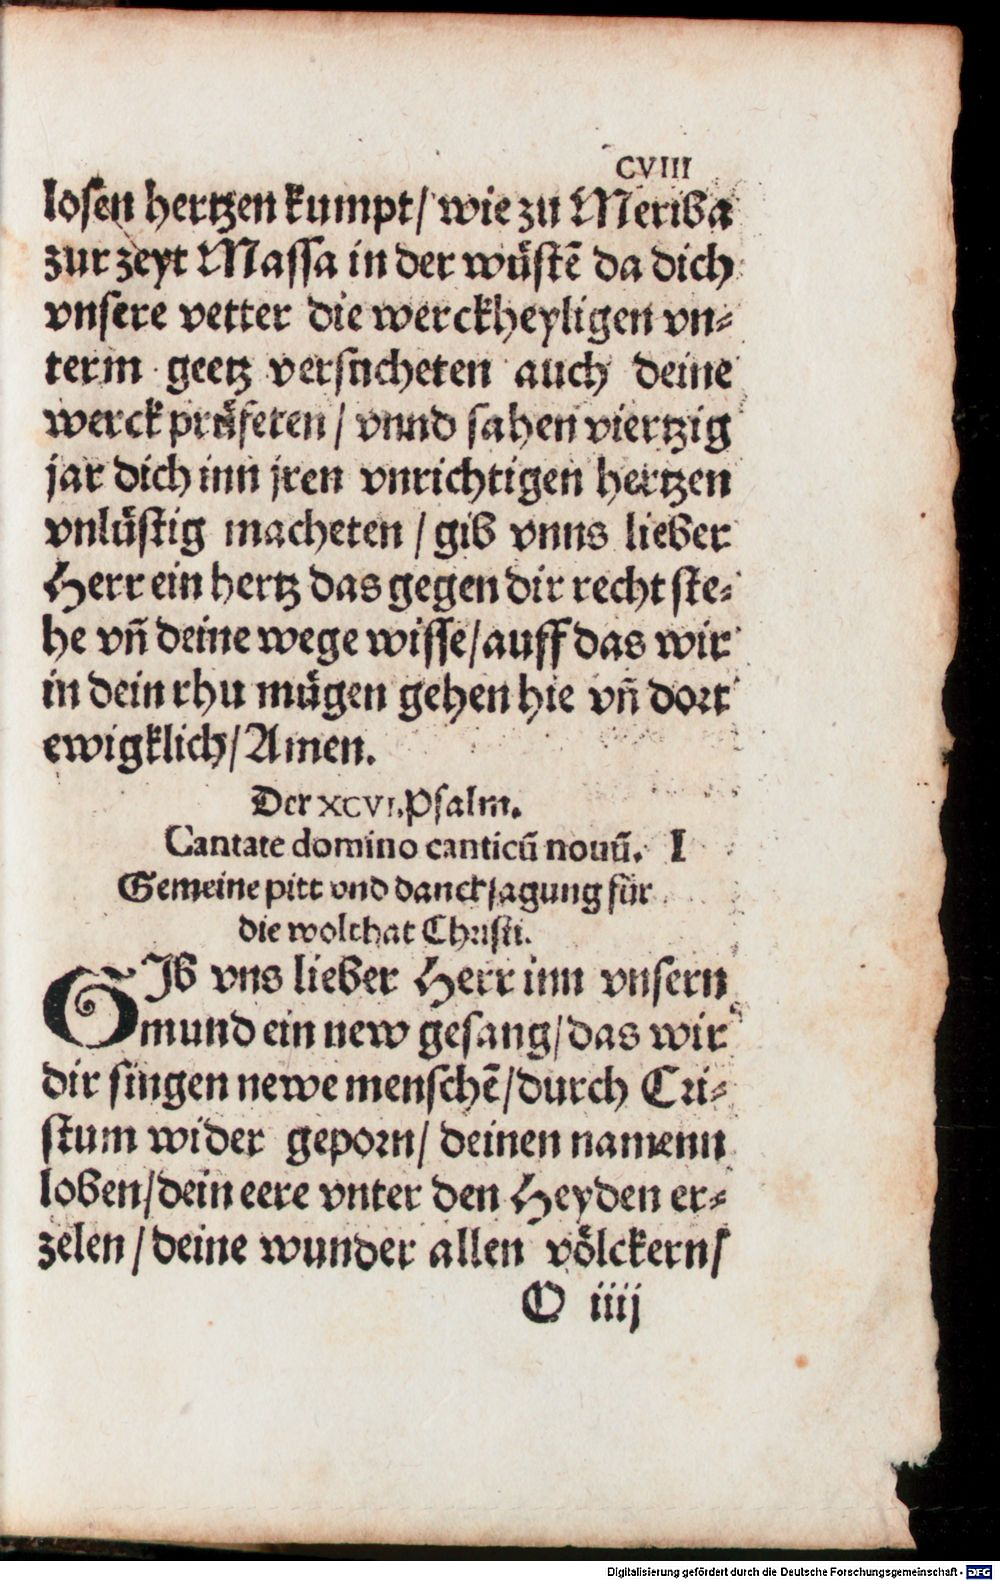 CVIII
losen hertzen kumpt/ wie zu Meriba
zur zeyt Massa in der wüstē da dich
vnsere vetter die werckheyligen vn⸗
term geetz versucheten auch deine
werck prüfeten/ vnnd sahen viertzig
jar dich inn jren vnrichtigen hertzen
vnlüstig macheten/ gib vnns lieber
Herr ein hertz das gegen dir recht ste⸗
he vñ deine wege wisse/ auff das wir
in dein rhu mügen gehen hie vñ dort
ewigklich/ Amen.
Der XCVI. Psalm.
Cantate domino canticū nouū. I
Gemeine pitt vnd dancksagung für
die wolthat Christi.
GIb vns lieber Herr inn vnsern
mund ein new gesang/ das wir
dir singen newe menschē/ durch Cri⸗
stum wider geporn/ deinen namenn
loben/ dein eere vnter den Heyden er⸗
zelen/ deine wunder allen völckern/
O iiij
Digitalisierung gefördert durch die Deutsche Forschungsgemeinschaft - DFG